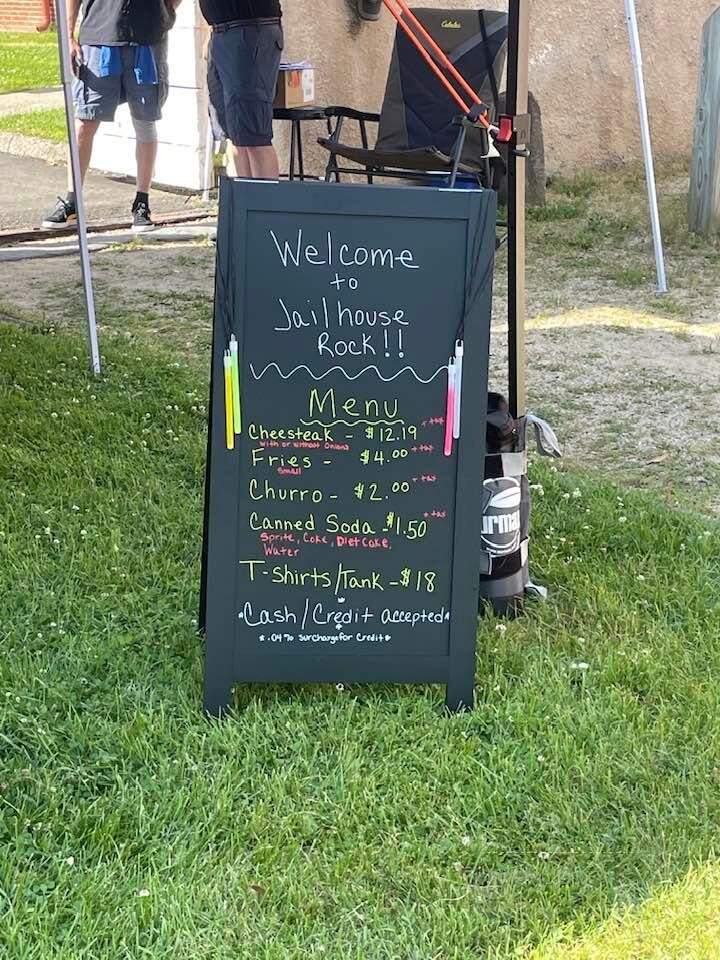 Cabela's
Welcome
to
Jailhouse
Rock!!
Menu
Cheesteak - $12.19 + tax
with or without Onions
Fries - $4.00 + tax
Small
Churro - $2.00 + tax
Canned Soda - $1.50 + tax
Sprite, Coke, Diet Coke,
Water
T-Shirts/Tank - $18
*Cash/Credit accepted*
*.04% Surcharge for Credit*